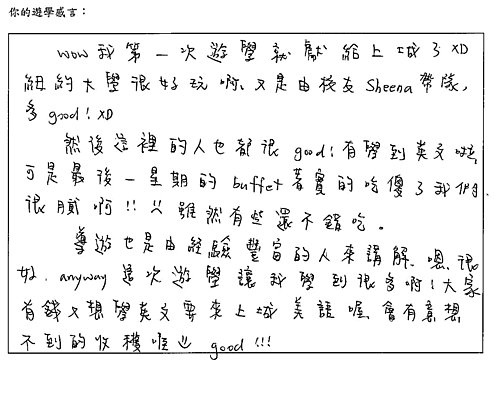 你的遊學感言：
wow 我第一次遊學就獻給上城了XD
紐約大學很好玩啊、又是由校友Sheena帶隊，
多good！XD
然後這裡的人也都很good！有學到英文啦，
可是最後一星期的buffet著實的吃傻了我們，
很膩啊!! 雖然有些還不錯吃。
導遊也是由經驗豐富的人來講解、嗯、很
好. anyway 這次遊學讓我學到很多啊！大家
有錢又想學英文要來上城美語喔、會有意想
不到的收穫唷 good!!!